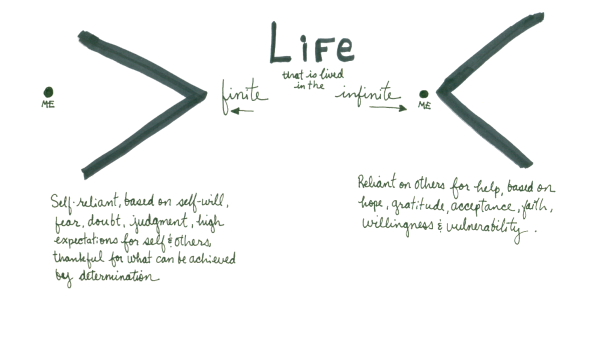 Life
that is lived
in the
finite
infinite
ME
ME
Self-reliant, based on self-will,
fear, doubt, judgment, high
expectations for self & others,
thankful for what can be achieved
by determination
Reliant on others for help, based on
hope, gratitude, acceptance, faith,
willingness & vulnerability.